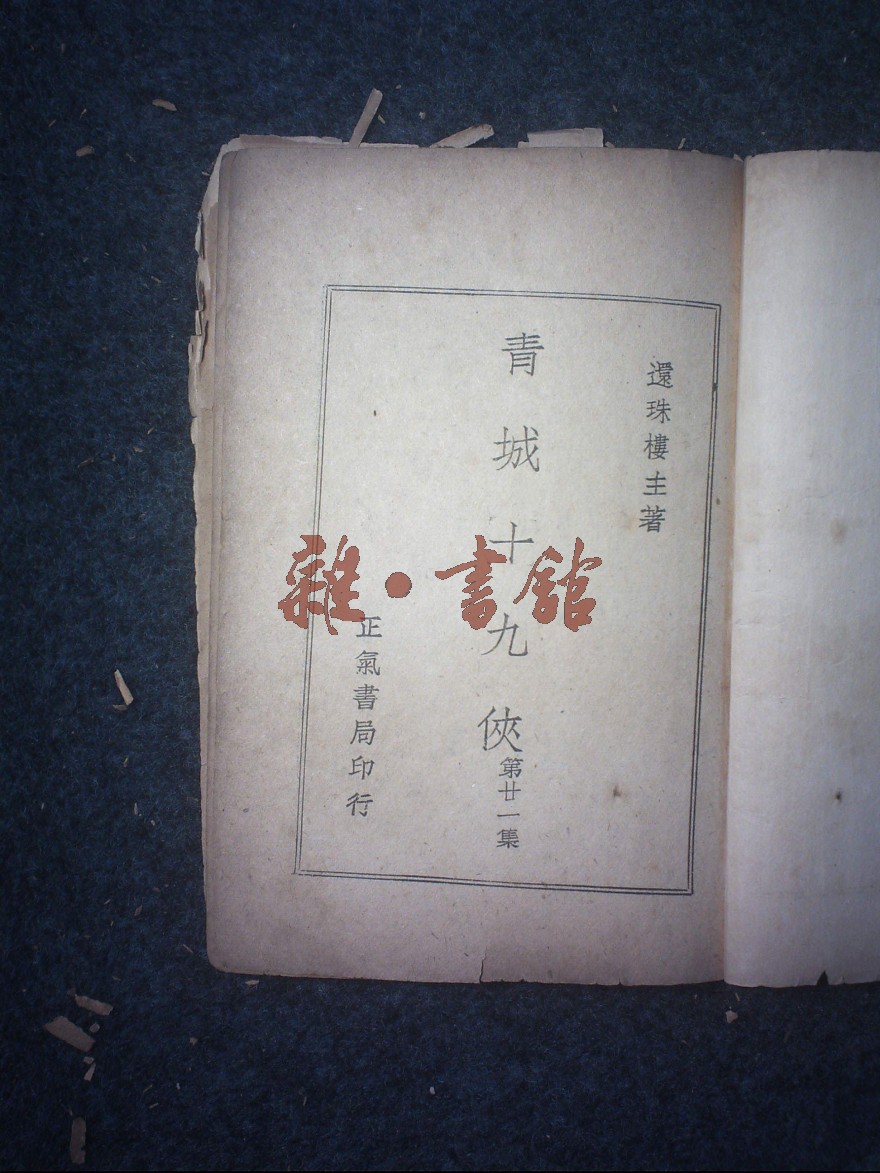 還珠樓主著
青城十九俠
第廿一集
正氣書局印行
雜·書館